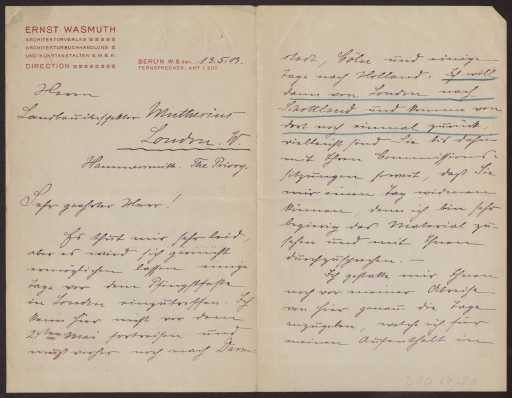 ERNST WASMUTH
ARCHITEKTURVERLAG
ARCHITEKTURBUCHHANDLUNG
UND KUNSTANSTALTEN G.M.B.H.
DIRECTION
BERLIN W. 8 den 13.5.03.
FERNSPRECHER: AMT I
Herrn
Landbauinspektor Muthesius
London. W.
Hammersmith. The Priory.
Sehr geehrter Herr!
Es thut mir sehr leid,
aber es wird sich gar nicht
ermöglichen lassen einige
Tage vor dem Pfingstfeste
in London einzutreffen. Ich
kann hier nicht vor dem
24ten Mai fortreisen und
muß vorher noch nach Darm-
stadt, Cöln und einige
Tage nach Holland. Ich will
dann von London nach
Schottland und komme von
dort noch einmal zurück,
vielleicht sind Sie bis dahin
mit Ihren Commissions-
sitzungen soweit, daß Sie
mir einen Tag widmen
können, denn ich bin sehr
begierig das Material zu
sehen und mit Ihnen
durchzusprechen. —
Ich gestatte mir Ihnen
noch vor meiner Abreise
von hier genau die Tage
anzugeben, welche ich für
meinen Aufenthalt in